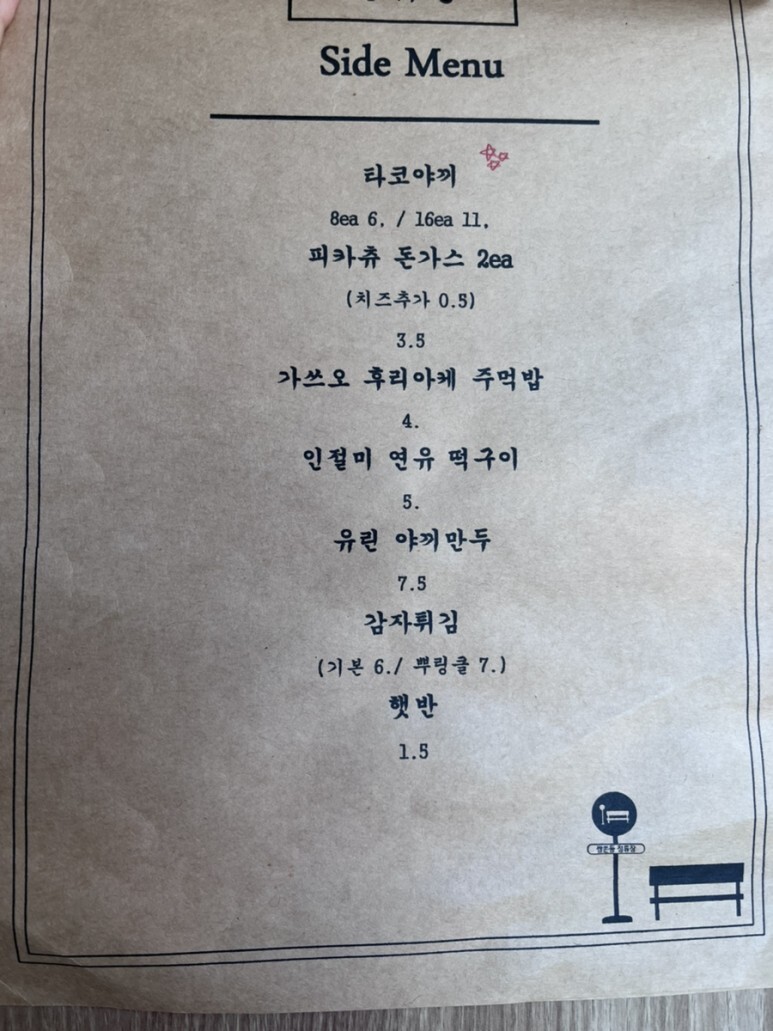 Side Menu
타코야끼
8ea 6, / 16ea 11,
피카츄 돈가스 2ea
(치즈추가 0.5)
3.5
가쓰오 후리아케 주먹밥
4.
인절미 연유 떡구이
5.
유린 야끼만두
7.5
감자튀김
(기본 6./ 뿌링클 7.)
햇반
1.5